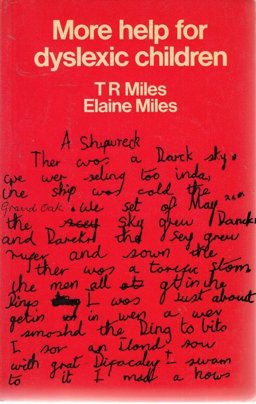 More help for
dyslexic children
T R Miles
Elaine Miles
A Shipwreck
Ther was a Darck sky.
we wer seling too inda,
the ship was cold the
Grand Oak. We set of May
the sky grew Dancker
and Darcker the sey grew
rufer and sown the
ther was a torefuc stom
the men all got in the
Dinys I was just about
getin in wen a wav
smoshd the Ding to bits
I sor an Iland sow
with grat Difacaley I swam
to it I mad a hows